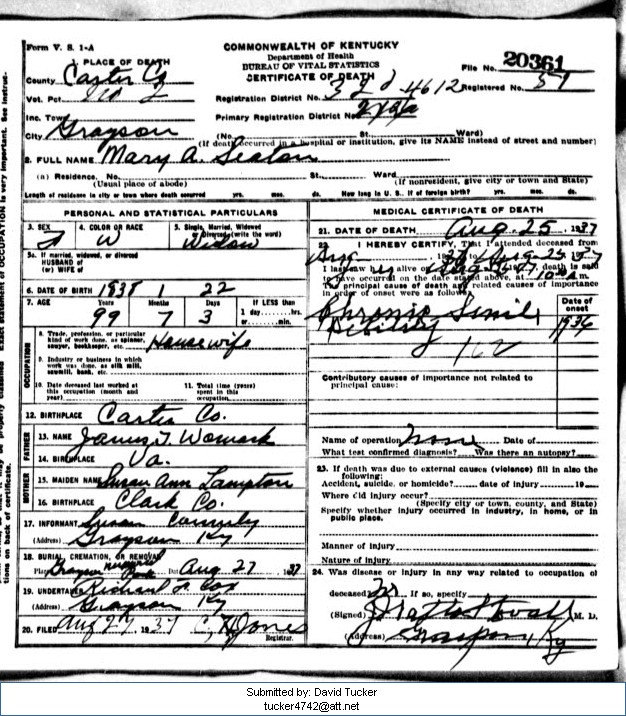 Form V. S. 1-A
COMMONWEALTH OF KENTUCKY
Department of Health
BUREAU OF VITAL STATISTICS
CERTIFICATE OF DEATH
File No. 20361
Registered No. 57
1. PLACE OF DEATH
County Carter Co
Vot. Pct. No 2
Inc. Town
City Grayson
Registration District No.
Primary Registration District No.
(No. St. Ward)
(If death occurred in a hospital or institution, give its NAME instead of street and number)
2. FULL NAME Mary A. Seaton
(a) Residence. No. St., Ward.
(Usual place of abode) (If nonresident, give city or town and State)
Length of residence in city or town where death occurred yrs. mos. ds. How long in U. S., if of foreign birth? yrs. mos. ds.
PERSONAL AND STATISTICAL PARTICULARS
3. SEX F
4. COLOR OR RACE W
5. Single, Married, Widowed or Divorced (write the word) Widow
5a. If married, widowed, or divorced
HUSBAND of
(or) WIFE of
6. DATE OF BIRTH 1838 1 22
7. AGE Years 99 Months 7 Days 3
If LESS than
1 day, hrs.
or min.
OCCUPATION
8. Trade, profession, or particular
kind of work done, as spinner,
sawyer, bookkeeper, etc. Housewife
9. Industry or business in which
work was done, as silk mill,
sawmill, bank, etc.
10. Date deceased last worked at
this occupation (month and
year)
11. Total time (years)
spent in this
occupation
12. BIRTHPLACE Carter Co.
FATHER
13. NAME James T. Womack
14. BIRTHPLACE Va.
MOTHER
15. MAIDEN NAME Susan Ann Lampton
16. BIRTHPLACE Clark Co.
17. INFORMANT Susan
(Address) Grayson Ky
18. BURIAL, CREMATION, OR REMOVAL
Place Grayson Date Aug 27 1937
19. UNDERTAKER Richard F. Cox
(Address) Grayson Ky
20. FILED Aug 27, 1937 Jones
Registrar.
MEDICAL CERTIFICATE OF DEATH
21. DATE OF DEATH Aug. 25, 1937
22. I HEREBY CERTIFY, That I attended deceased from
I last saw her alive on death is said
to have occurred on the date stated above, at m.
The principal cause of death and related causes of importance
in order of onset were as follows:
Date of onset
Chronic Senile 1936
Debility
162
Contributory causes of importance not related to
principal cause:
Name of operation None Date of
What test confirmed diagnosis? Was there an autopsy?
23. If death was due to external causes (violence) fill in also the
following:
Accident, suicide, or homicide? date of injury 19
Where did injury occur?
(Specify city or town, county, and State)
Specify whether injury occurred in industry, in home, or in
public place.
Manner of injury
Nature of injury
24. Was disease or injury in any way related to occupation of
deceased? If so, specify
(Signed) M. D.
(Address) Grayson, Ky
Submitted by: David Tucker
tucker4742@att.net